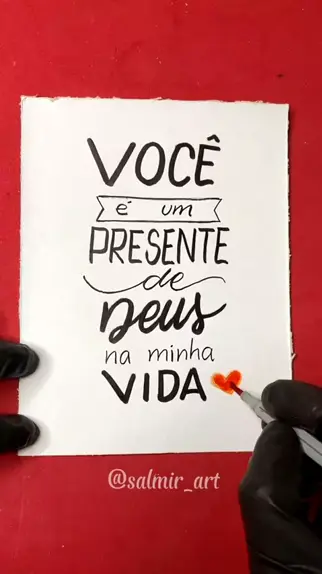 VOCÊ
é um
PRESENTE
de
Deus
na minha
VIDA
@salmir_art